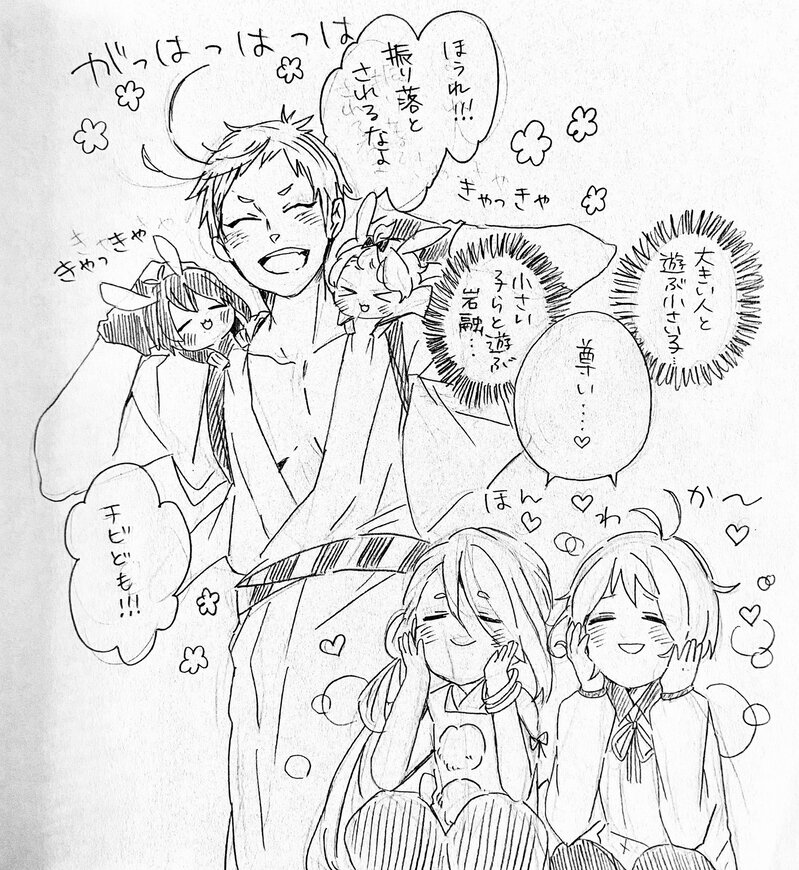 がっはっはっは
ほうれ!!!
振り落と
されるなよ
きゃっきゃ
きゃっきゃ
大きい人と
遊ぶ小さい子…
小さい
子らと遊ぶ
岩融…
尊い……♡
チビども!!!
ほんわか〜